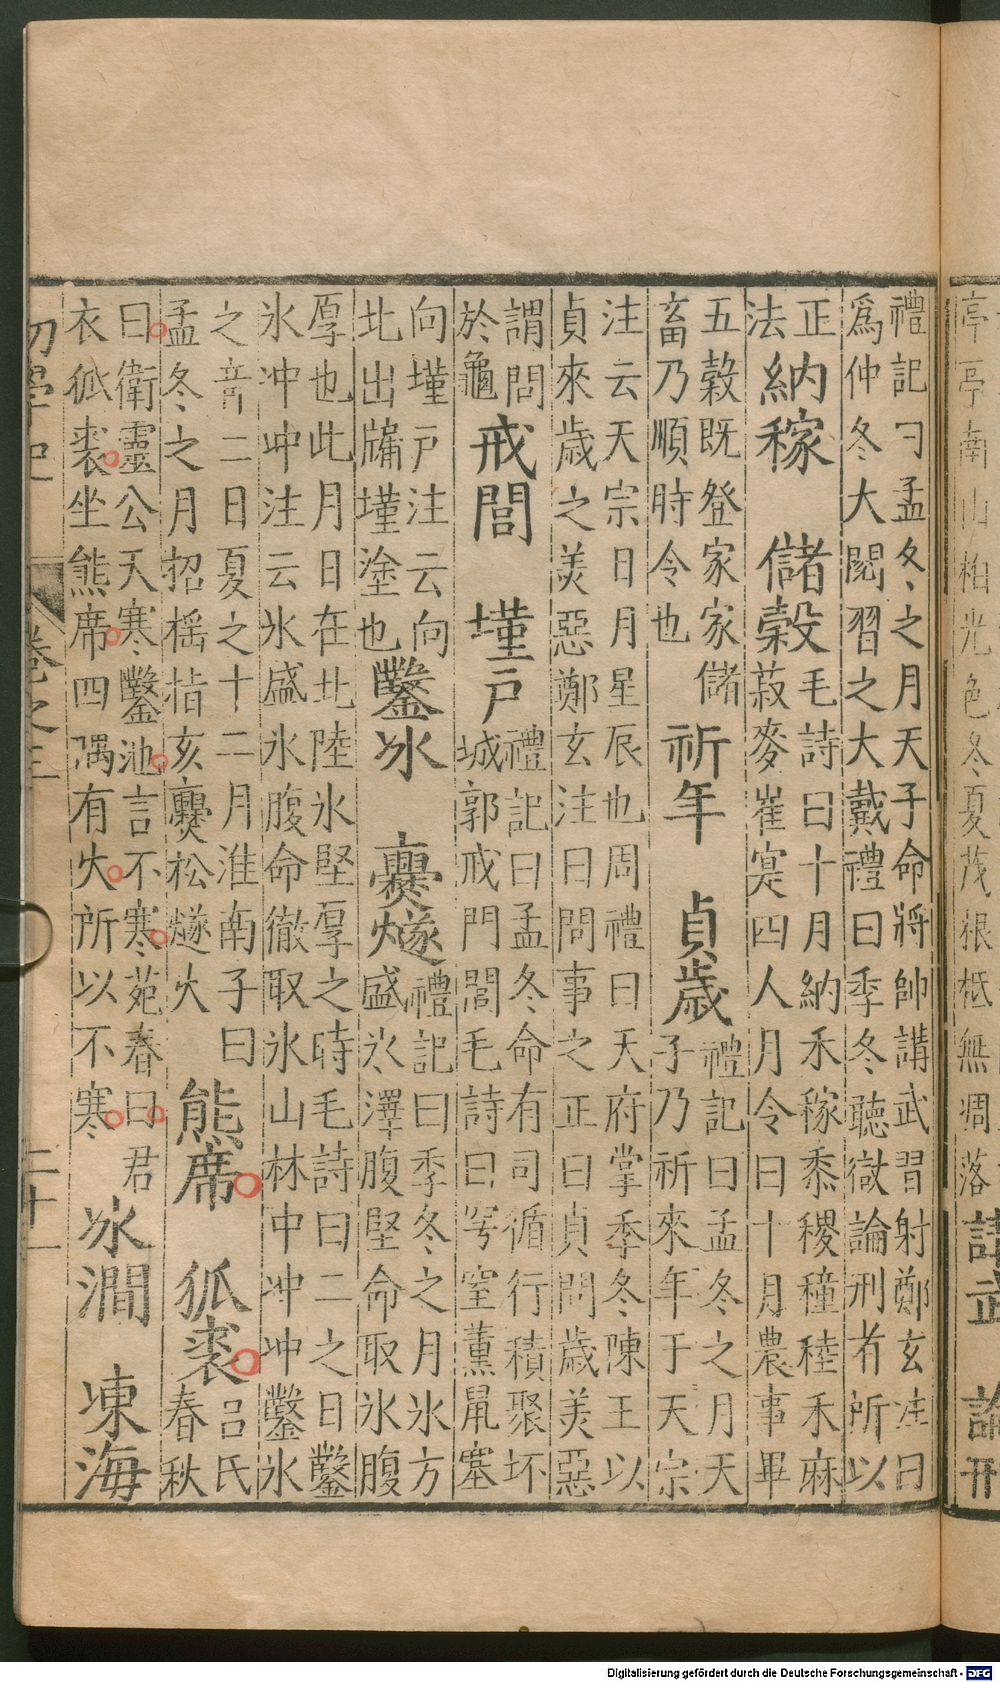 亭亭南山柏光色冬夏茂根柢無凋落 講武 論刑
禮記曰孟冬之月天子命將帥講武習射鄭玄注曰
爲仲冬大閱習之大戴禮曰季冬聽獄論刑者所以
正法 納稼 儲穀 毛詩曰十月納禾稼黍稷穜稑禾麻
菽麥崔寔四人月令曰十月農事畢
五穀既登家家儲
畜乃順時令也 祈年 貞歲 禮記曰孟冬之月天
子乃祈來年于天宗
注云天宗日月星辰也周禮曰天府掌季冬陳玉以
貞來歲之美惡鄭玄注曰問事之正曰貞問歲美惡
謂問
於龜 戒閭 墐戶 禮記曰孟冬命有司循行積聚坏
城郭戒門閭毛詩曰穹窒薰鼠塞
向墐戶注云向
北出牖墐塗也 鑿冰 爨燧 禮記曰季冬之月氷方
盛氷澤腹堅命取氷腹
厚也此月日在北陸氷堅厚之時毛詩曰二之日鑿
氷冲冲注云氷盛氷腹命徹取氷山林中冲冲鑿氷
之音二日夏之十二月淮南子曰
孟冬之月招摇指亥爨松燧火 熊席 狐裘 吕氏
春秋
曰衛靈公天寒鑿池言不寒苑春曰君
衣狐裘坐熊席四隅有火所以不寒 冰澗 凍海
初學記 卷之三 二十一
Digitalisierung gefördert durch die Deutsche Forschungsgemeinschaft - DFG